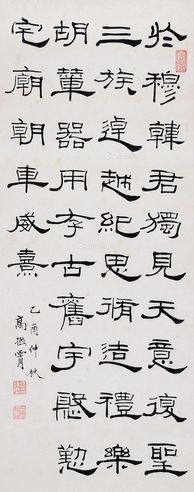 於穆韓君獨見天意復聖
三族逴越紀思脩造禮樂
胡輦器用存古舊宇慇懃
宅廟朝車威熹
乙酉仲秋
高振霄